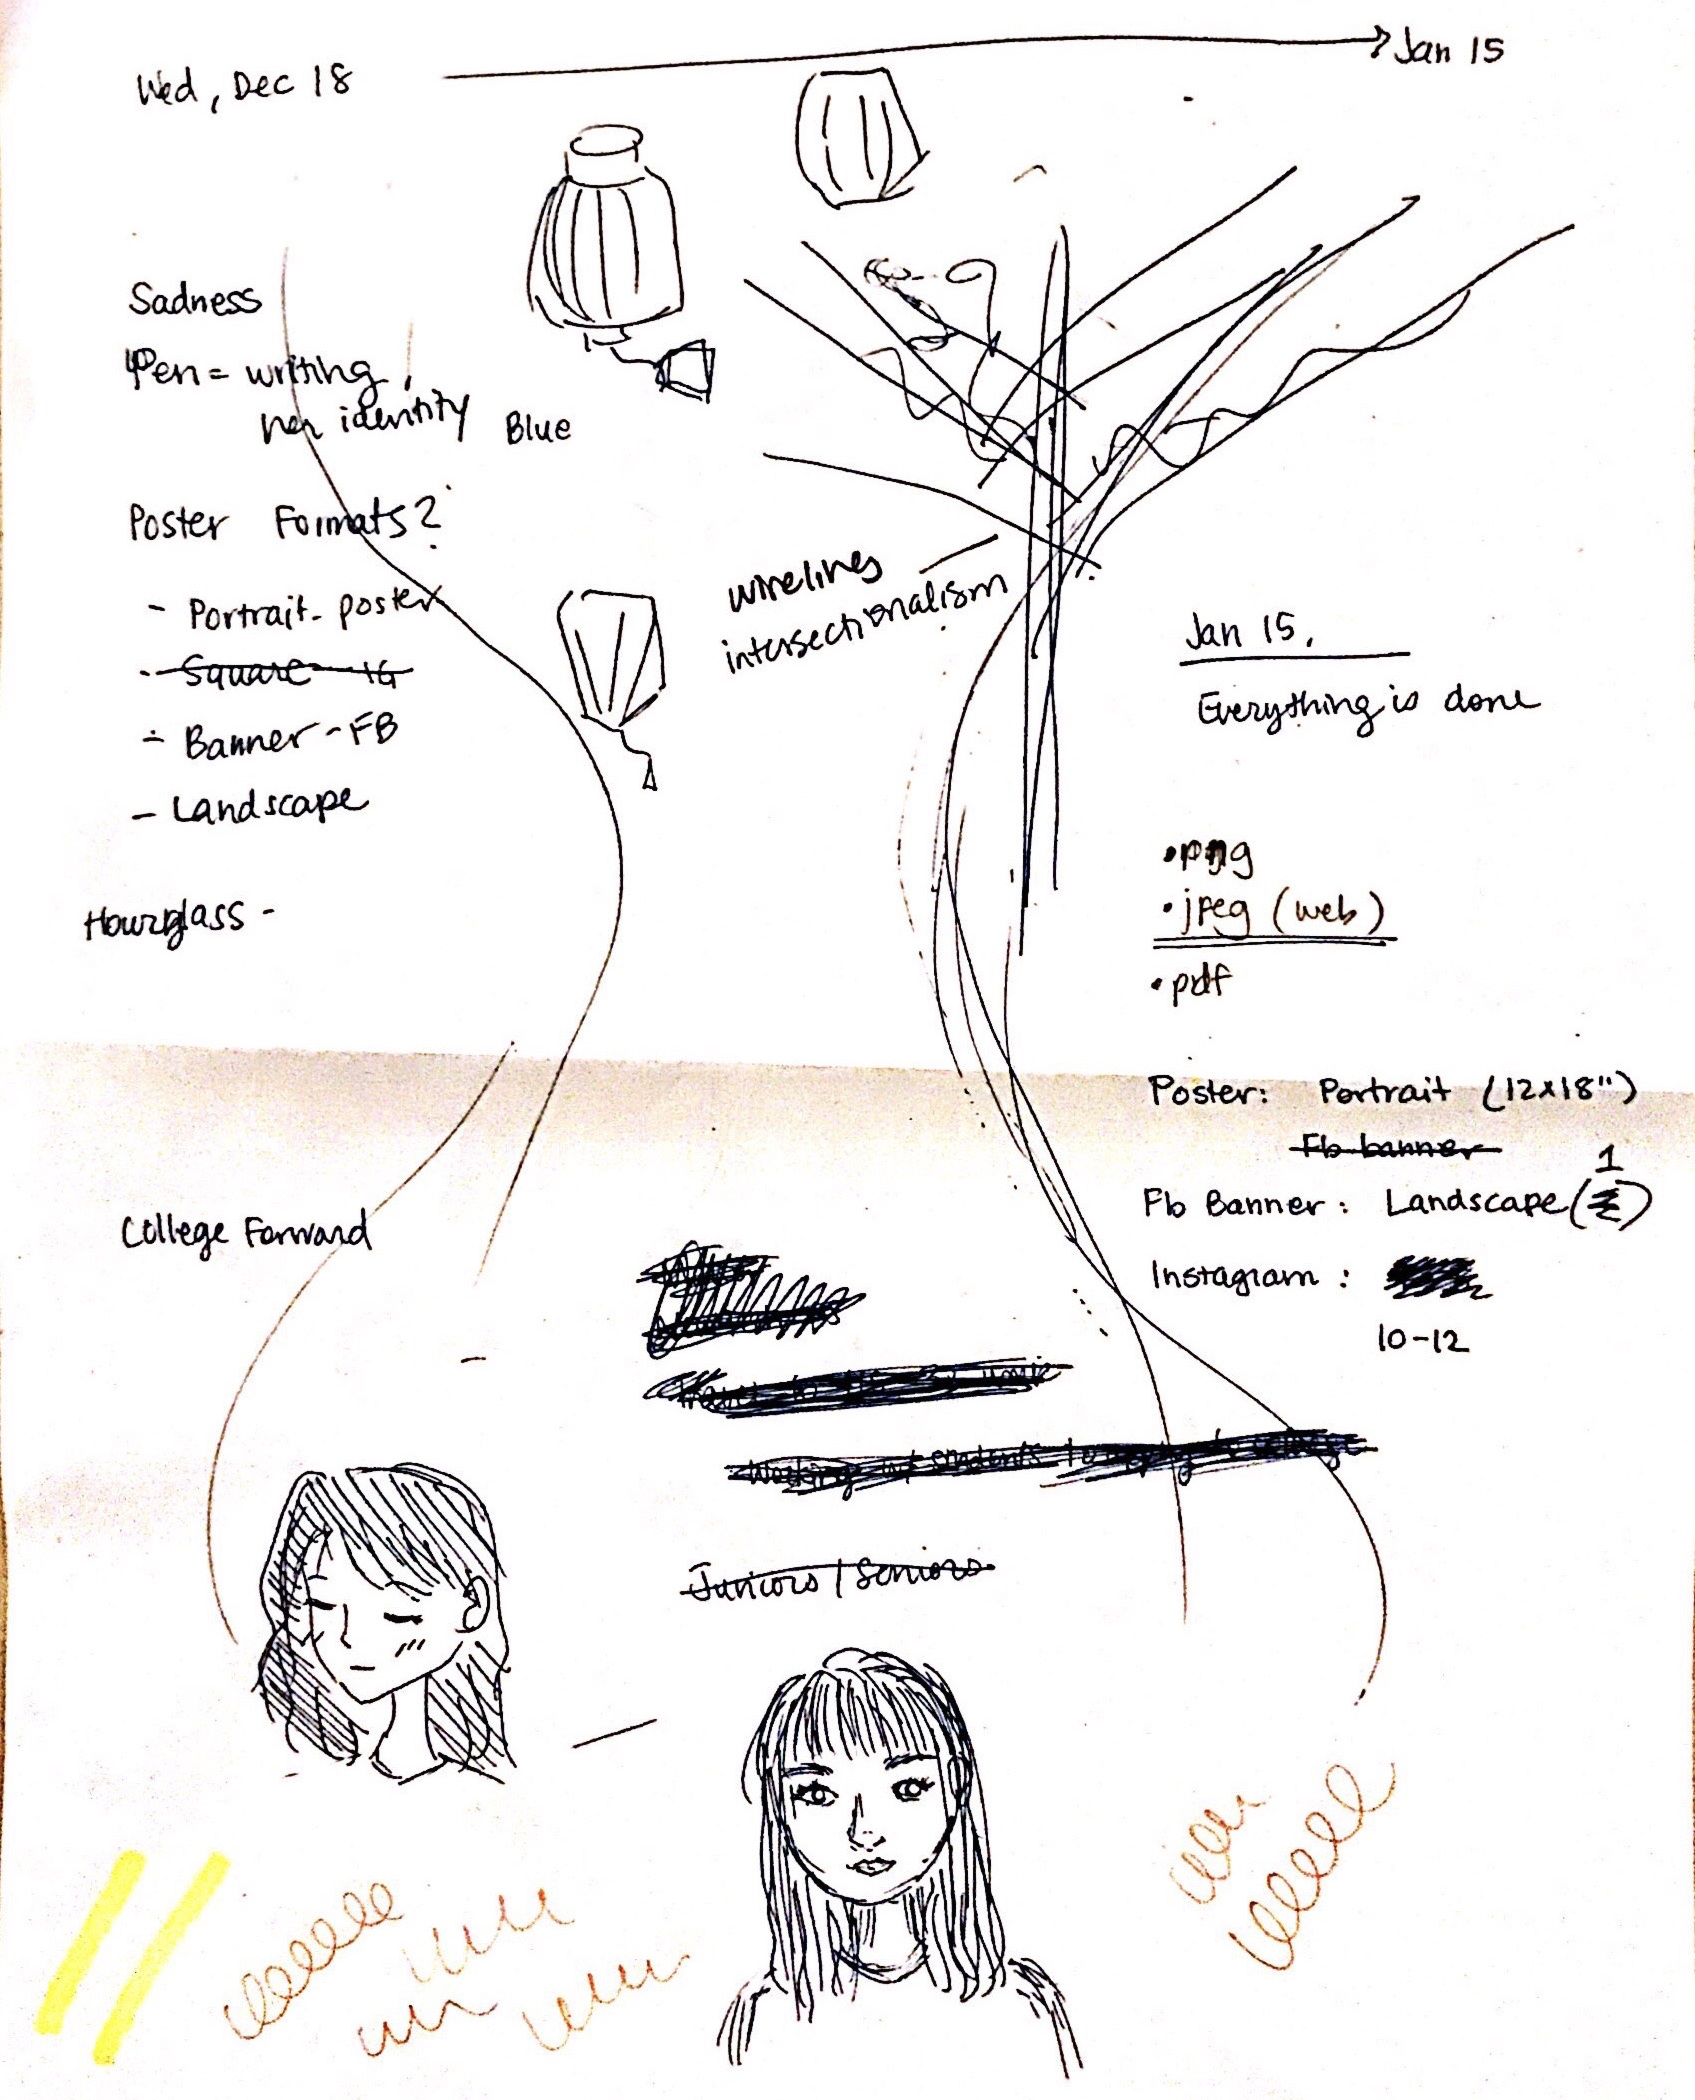 Wed, Dec 18
Jan 15
Sadness
Pen = writing
her identity
Blue
Poster Formats?
- Portrait - poster
- Square - IG
- Banner - FB
- Landscape
wirelines
intersectionalism
Jan 15,
Everything is done
Hourglass -
• png
• jpeg (web)
• pdf
Poster: Portrait (12x18")
Fb banner
Fb Banner: Landscape (1)
Instagram:
10-12
College Forward
Working w/ students
Juniors / Seniors